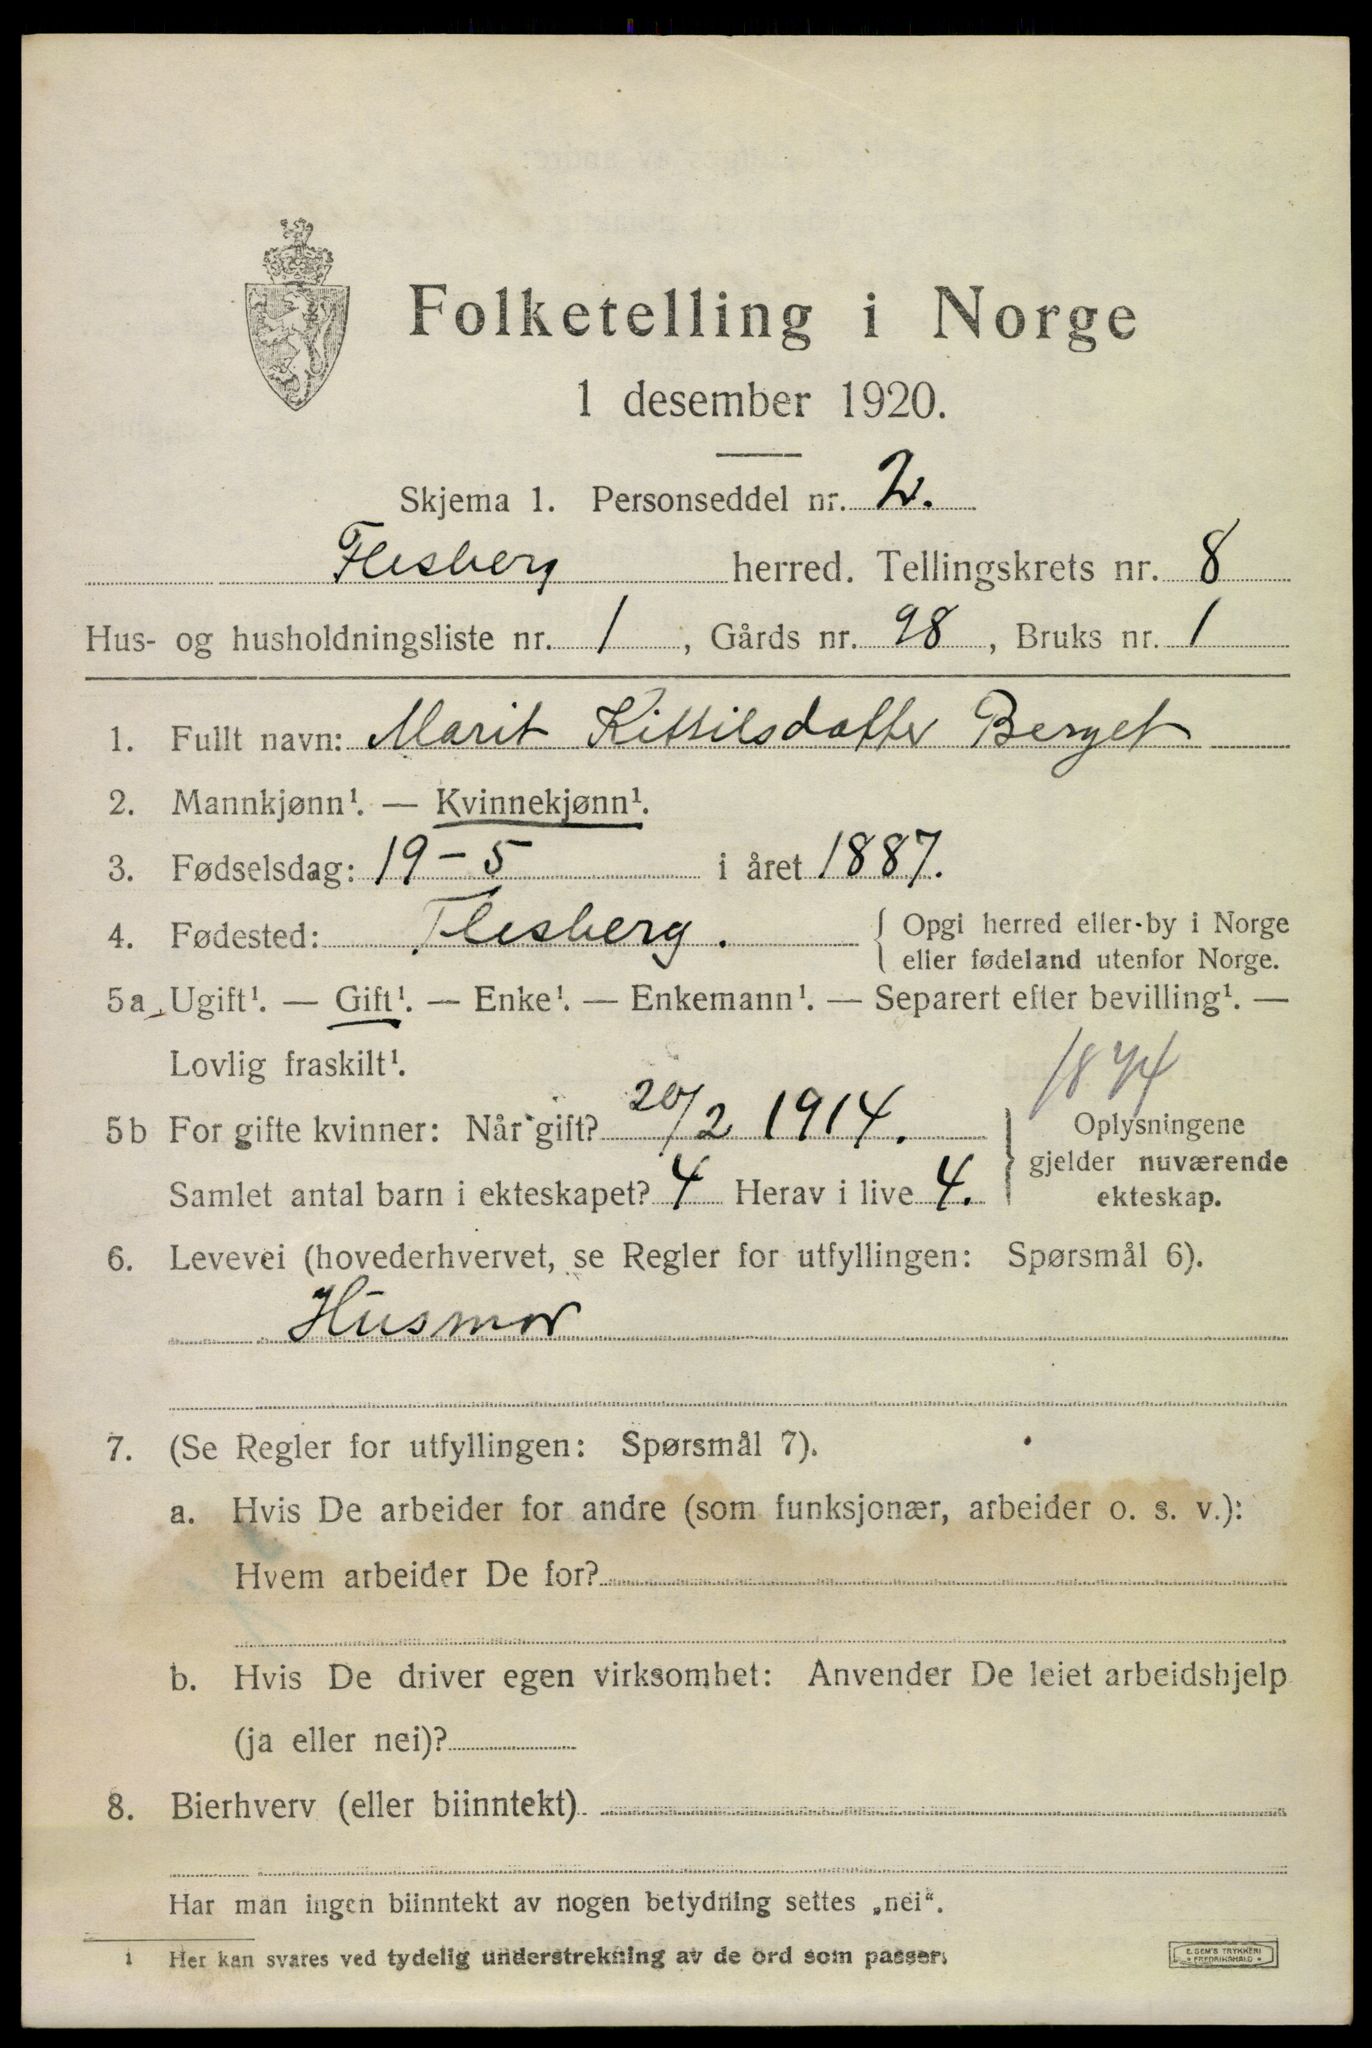 Folketelling i Norge
1 desember 1920.
Skjema 1. Personseddel nr. 2.
Flesberg herred. Tellingskrets nr. 8
Hus- og husholdningsliste nr. 1, Gårds nr. 98, Bruks nr. 1
1. Fullt navn: Marit Kittilsdatter Berget
2. Mannkjønn¹. — Kvinnekjønn¹.
3. Fødselsdag: 19-5 i året 1887.
4. Fødested: Flesberg. { Opgi herred eller by i Norge
eller fødeland utenfor Norge.
5a Ugift¹. — Gift¹. — Enke¹. — Enkemann¹. — Separert efter bevilling¹. —
Lovlig fraskilt¹.
5b For gifte kvinner: Når gift? 20/2 1914. } Oplysningene
gjelder nuværende
Samlet antal barn i ekteskapet? 4 Herav i live 4. ekteskap.
6. Levevei (hovederhvervet, se Regler for utfyllingen: Spørsmål 6).
Husmor
7. (Se Regler for utfyllingen: Spørsmål 7).
a. Hvis De arbeider for andre (som funksjonær, arbeider o. s. v.):
Hvem arbeider De for?
b. Hvis De driver egen virksomhet: Anvender De leiet arbeidshjelp
(ja eller nei)?
8. Bierhverv (eller biinntekt)
Har man ingen biinntekt av nogen betydning settes „nei“.
1 Her kan svares ved tydelig understrekning av de ord som passer.
E. SEM'S TRYKKERI
FREDRIKSHALD